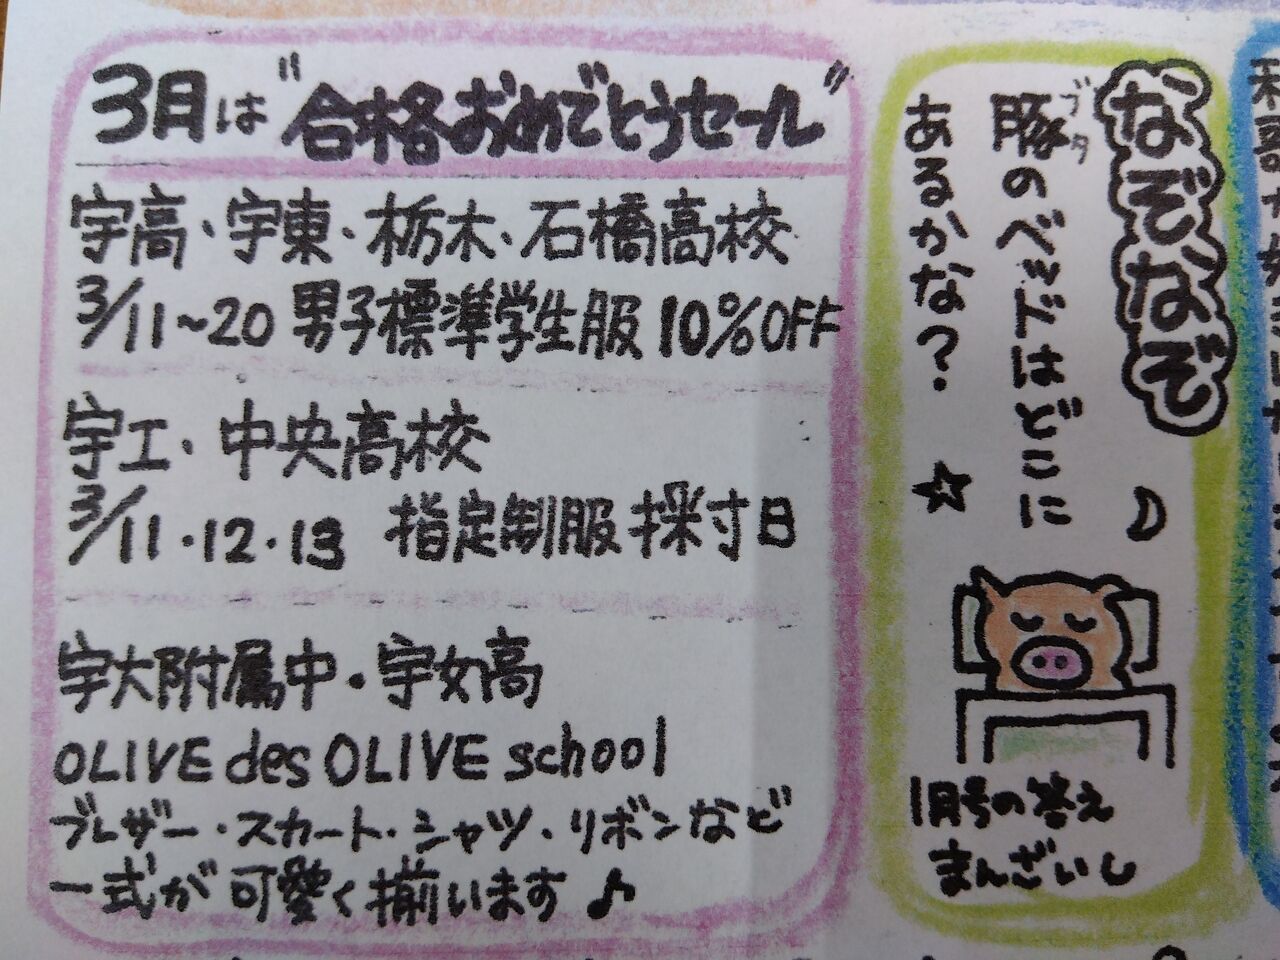 3月は"合格おめでとうセール"
宇高・宇東・栃木・石橋高校
3/11~20 男子標準学生服 10%OFF
宇工・中央高校
3/11・12・13 指定制服採寸日
宇大附属中・宇女高
OLIVE des OLIVE school
ブレザー・スカート・シャツ・リボンなど
一式が可愛く揃います♪
なぞなぞ
豚のベッドはどこに
ブタ
あるかな?
1月号の答え
まんざいし